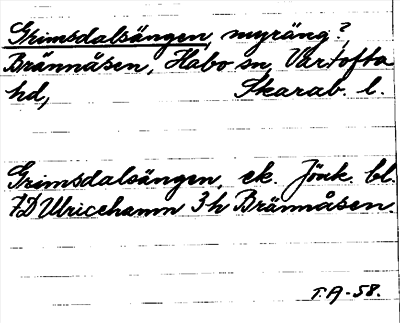 Grimsdalsängen, myräng?,
Brännåsen, Habo sn, Vartofta
hd, Skarab. l.
Grimsdalsängen, ek. Jönk. bl.
7D Ulricehamn 3h Brännåsen.
T.A-58.